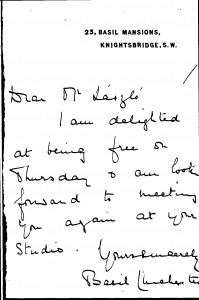 25, BASIL MANSIONS,
KNIGHTSBRIDGE, S.W.
Dear Mr László
I am delighted
at being free on
Thursday & am look
forward to meeting
you again at your
Studio.
Yours sincerely
Basil